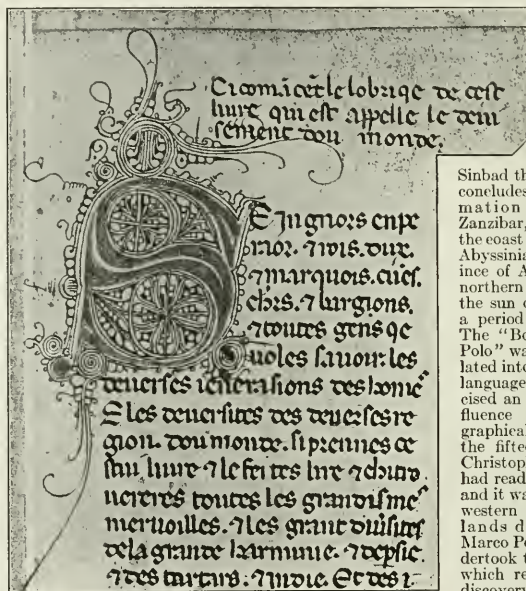 Ci comācēt le lobriqe de cest
liure qui est appelle le deui
sement dou monde.
SEingnors enpe
raor. ⁊ rois. dux.
⁊ marquois. cuēs.
chrs. ⁊ burgions.
⁊ toutes gens qe
uoles sauoir les
deuerses ienerasions des home
E les deuersites des deuerses re
gion. dou monde. si prennes ce
stui liure ⁊ le feites lire ⁊ chi trou
ueres toutes les grandisme
meruoilles. ⁊ les grant diuisites
de la grande harminie. ⁊ de psie.
⁊ des tartars. ⁊ indie. Et des i-
Sinbad th
concludes
mation
Zanzibar,
the coast
Abyssinia
ince of A
northern
the sun
a period
The "Bo
Polo" wa
lated into
language
cised an
fluence
graphical
the fifte
Christop
had read
and it wa
western
lands d
Marco Po
dertook t
which re
discovery